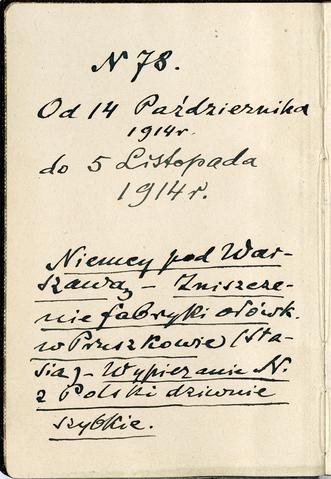 N 78.
Od 14 Października
1914r.
do 5 Listopada
1914r.
Niemcy pod War-
szawą – Zniszcze-
nie fabryki ołówk.
w Pruszkowie (Sta-
sia) – Wypieranie N.
z Polski dziwnie
szybkie.